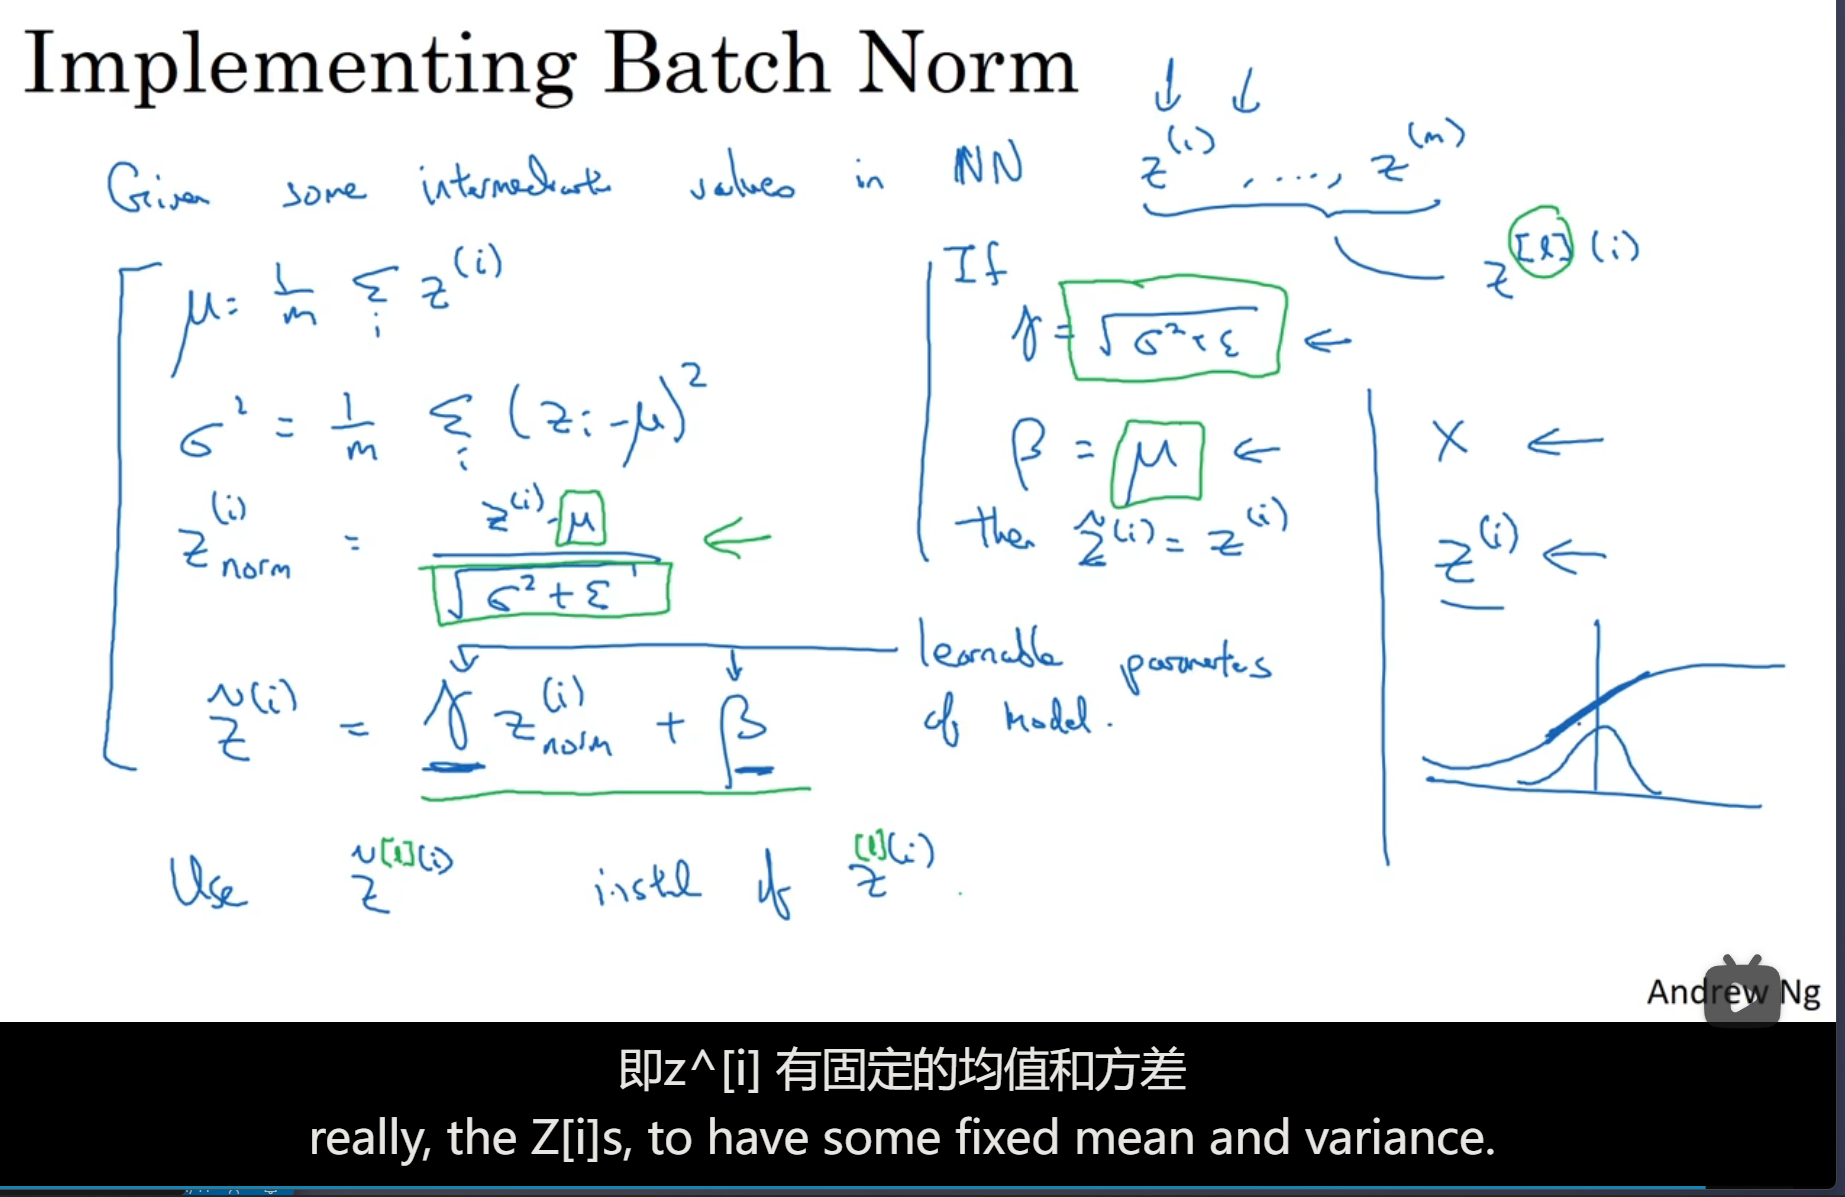 Implementing Batch Norm
Given some intermediate values in NN z^(i), ...., z^(m)
z^[l](i)
μ = 1/m Σ_i z^(i)
σ² = 1/m Σ_i (z_i - μ)²
z^(i)_norm = (z^(i) - μ) / √(σ² + ε)
z̃^(i) = γ z^(i)_norm + β
If
γ = √(σ² + ε) ←
β = μ ←
then z̃^(i) = z^(i)
learnable parameters
of model.
X ←
z^(i) ←
Use z̃^[l](i) instead of z^[l](i).
Andrew Ng
即z^[i] 有固定的均值和方差
really, the Z[i]s, to have some fixed mean and variance.